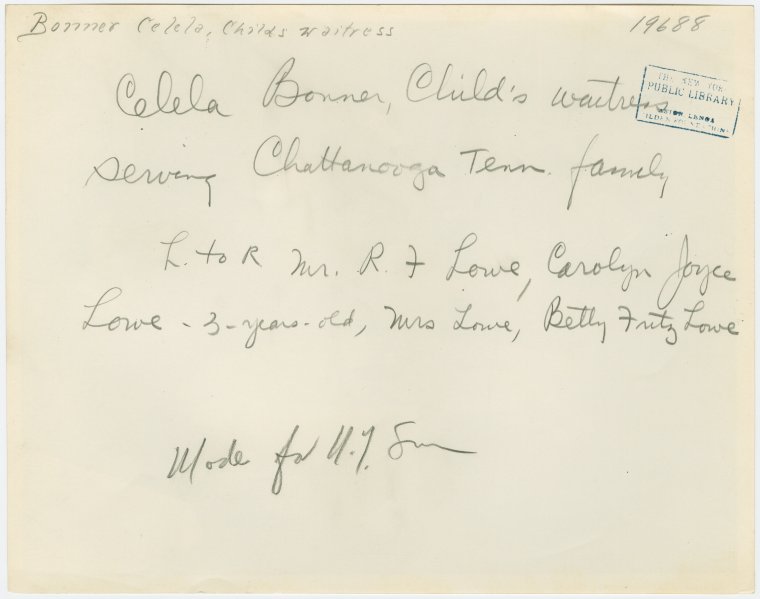 Bonner Celela, Childs waitress
19688
THE NEW YORK
PUBLIC LIBRARY
ASTOR LENOX
TILDEN FOUNDATIONS
Celela Bonner, Child's waitress
serving Chattanooga Tenn. family
L. to R Mr. R. F Lowe, Carolyn Joyce
Lowe - 3-years-old, Mrs Lowe, Betty Fritz Lowe
Made for N.Y. Sun